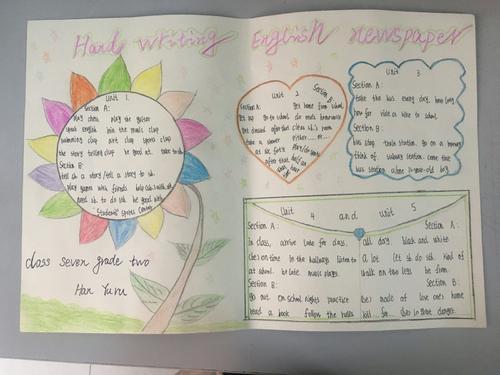 Hand writing English newspaper
Unit 1
Section A:
play chess play the guitar
speak english join the music club
swimming club art club sports club
the story telling club be good at talk to
Section B:
tell sb a story/tell a story to sb
play games with friends help sb with sth
need sb to do sth be good with
Students' Sports Center
class seven grade two
Han Yuru
Unit 2
Section A:
get up go to school
get dressed
take a shower
Section B:
get home from school
do one's homework
clean sb's room
either...or...
Unit 3
Section A:
take the bus every day. how long
how far ride a bike to school
Section B:
bus stop train station. go on a
think of. subway station. come true
bus station alone 11-year-old boy
Unit 4 and unit 5
Section A:
in class, arrive late for class.
(be) on time in the hallways listen to
at school. be late music player.
Section B:
go out. on school nights practice
read a book follow the rules
Section A:
all day. black and white
a lot let sb do sth. kind of
walk on two legs be from.
Section B:
(be) made of love one's home
kill for (be) in great danger.